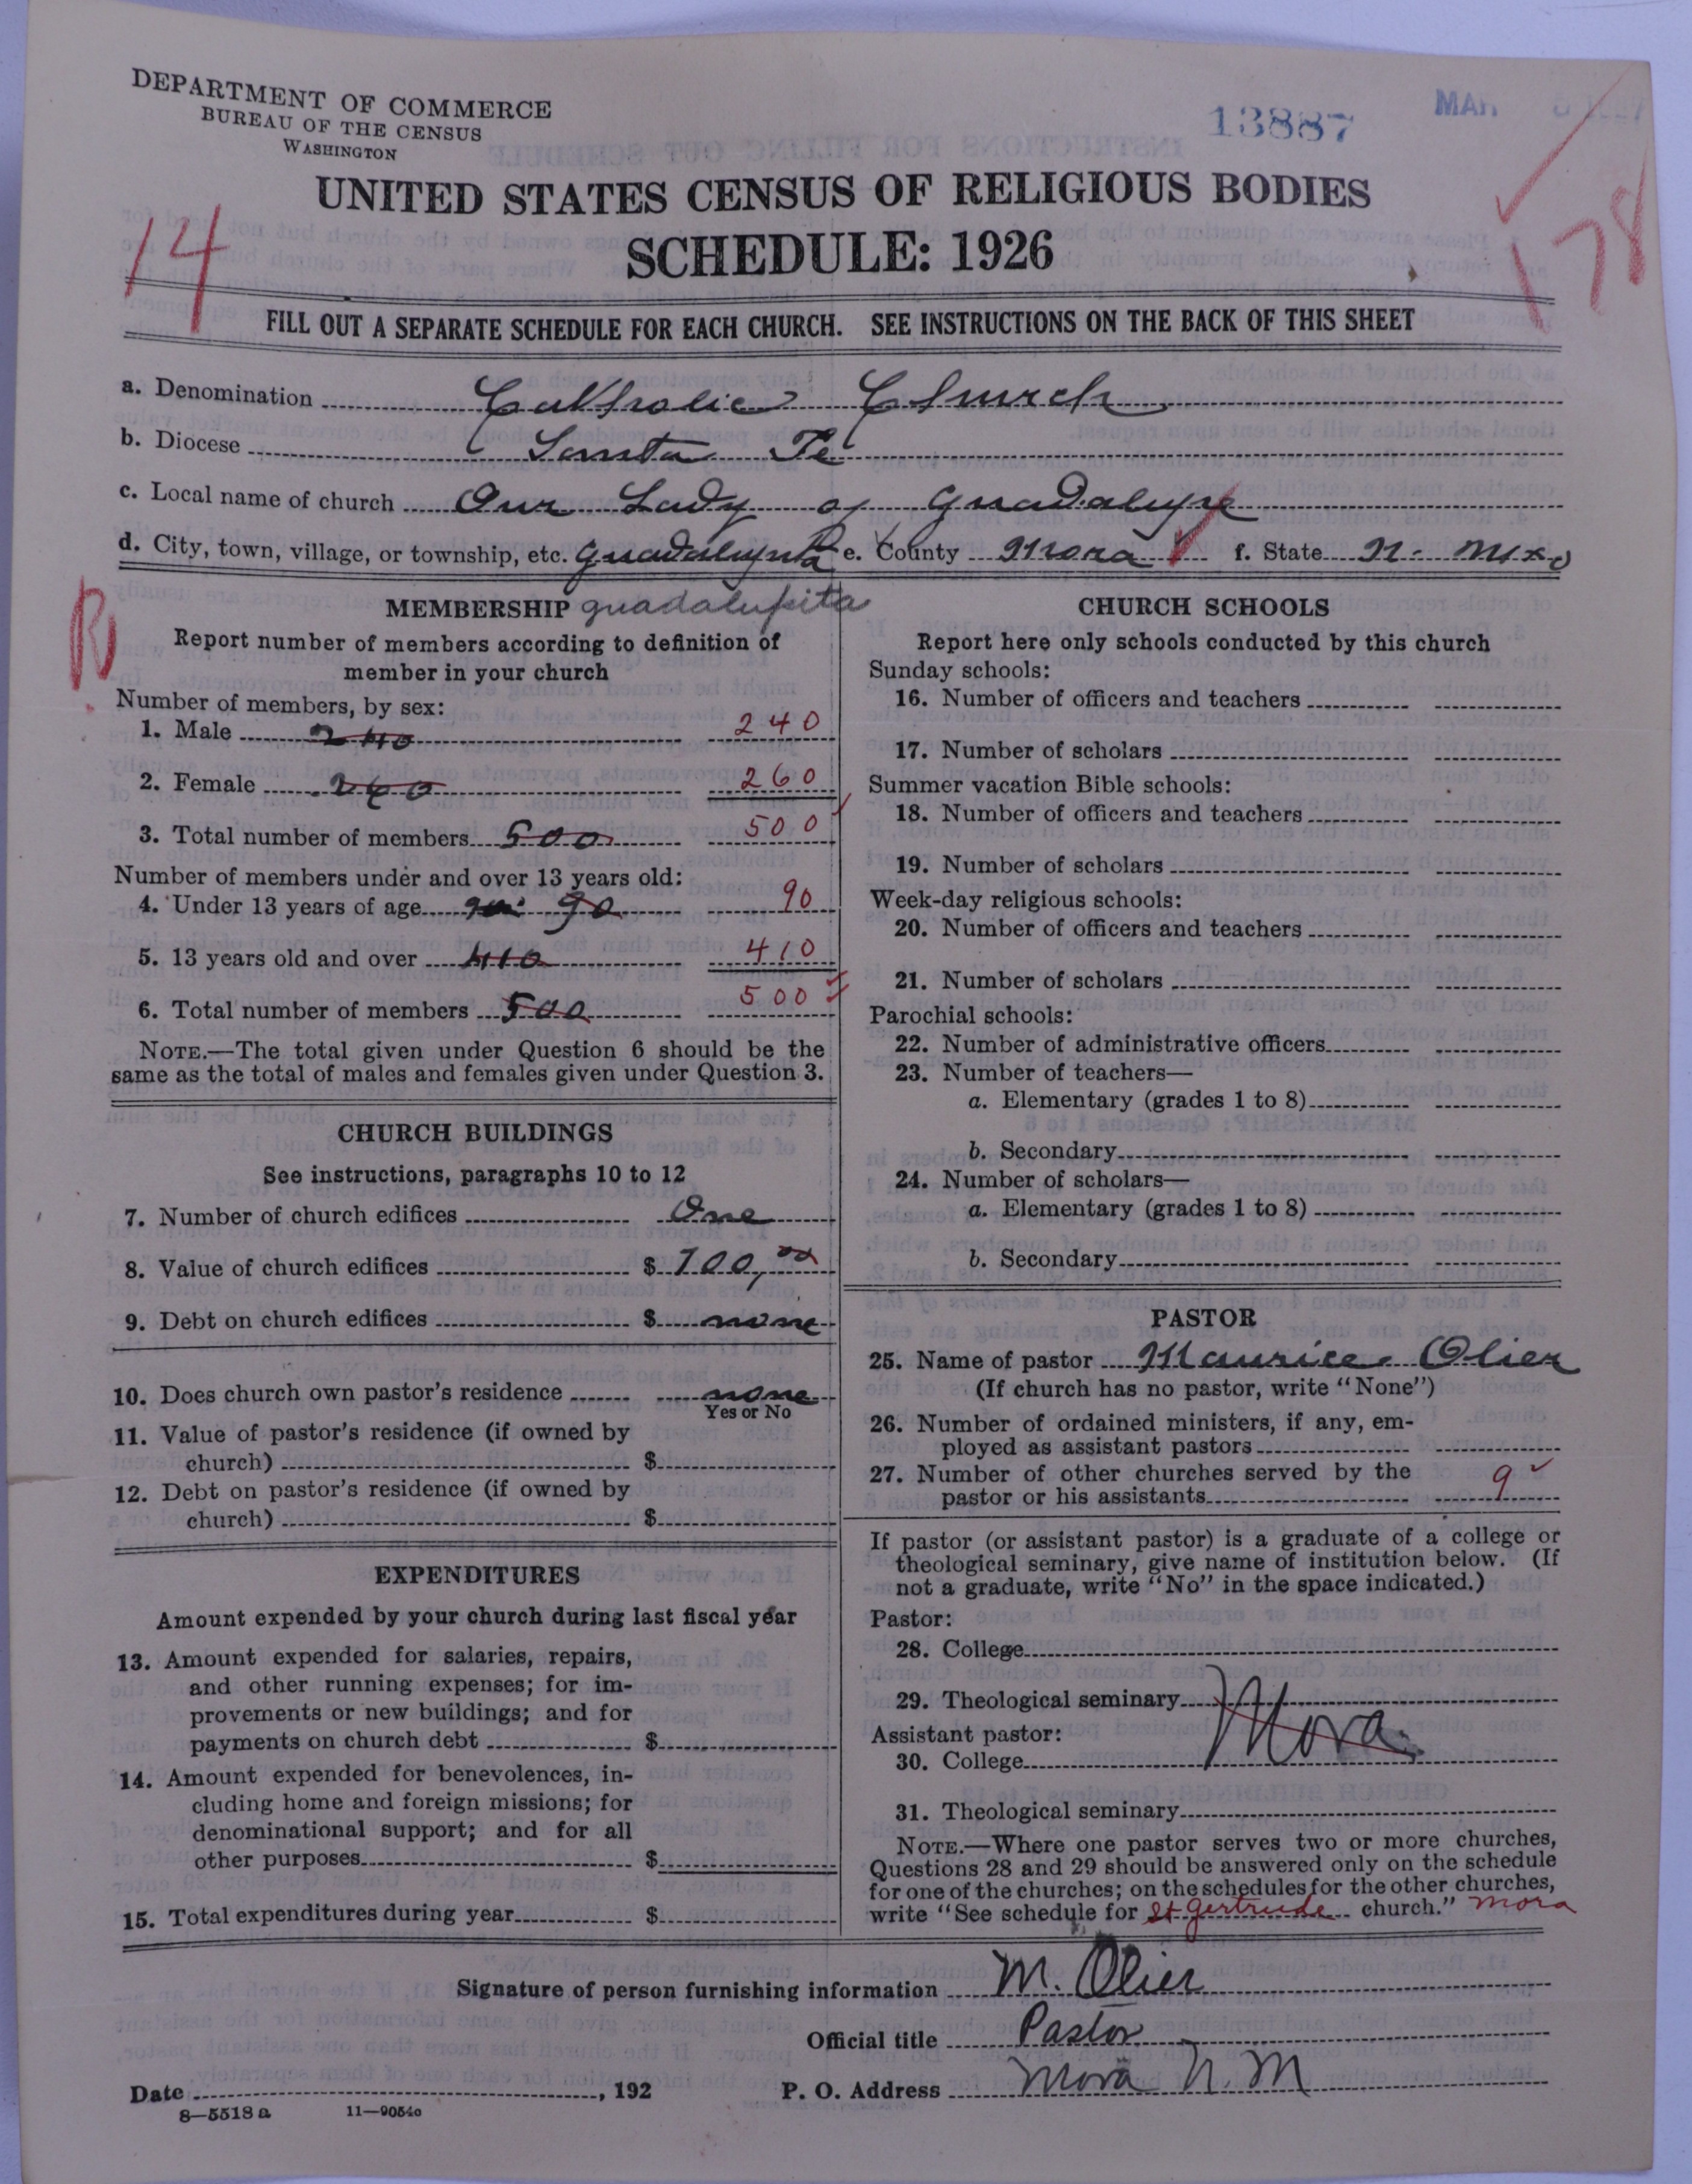 DEPARTMENT OF COMMERCE
BUREAU OF THE CENSUS
WASHINGTON
13887
MAR
UNITED STATES CENSUS OF RELIGIOUS BODIES
SCHEDULE: 1926
14
178
FILL OUT A SEPARATE SCHEDULE FOR EACH CHURCH. SEE INSTRUCTIONS ON THE BACK OF THIS SHEET
a. Denomination Catholic Church
b. Diocese Santa Fe
c. Local name of church Our Lady of Guadalupe
d. City, town, village, or township, etc. Guadalupita e. County Mora f. State N. Mexo
R
MEMBERSHIP guadalupita
Report number of members according to definition of
member in your church
Number of members, by sex:
1. Male 240 240
2. Female 260 260
3. Total number of members 500 500
Number of members under and over 13 years old:
4. Under 13 years of age 90 90
5. 13 years old and over 410 410
6. Total number of members 500 500
NOTE.—The total given under Question 6 should be the
same as the total of males and females given under Question 3.
CHURCH BUILDINGS
See instructions, paragraphs 10 to 12
7. Number of church edifices One
8. Value of church edifices $ 700,00
9. Debt on church edifices $ none
10. Does church own pastor's residence none
Yes or No
11. Value of pastor's residence (if owned by
church) $
12. Debt on pastor's residence (if owned by
church) $
EXPENDITURES
Amount expended by your church during last fiscal year
13. Amount expended for salaries, repairs,
and other running expenses; for im-
provements or new buildings; and for
payments on church debt $
14. Amount expended for benevolences, in-
cluding home and foreign missions; for
denominational support; and for all
other purposes $
15. Total expenditures during year $
CHURCH SCHOOLS
Report here only schools conducted by this church
Sunday schools:
16. Number of officers and teachers
17. Number of scholars
Summer vacation Bible schools:
18. Number of officers and teachers
19. Number of scholars
Week-day religious schools:
20. Number of officers and teachers
21. Number of scholars
Parochial schools:
22. Number of administrative officers
23. Number of teachers—
a. Elementary (grades 1 to 8)
b. Secondary
24. Number of scholars—
a. Elementary (grades 1 to 8)
b. Secondary
PASTOR
25. Name of pastor Maurice Olier
(If church has no pastor, write "None")
26. Number of ordained ministers, if any, em-
ployed as assistant pastors
27. Number of other churches served by the
pastor or his assistants 9
If pastor (or assistant pastor) is a graduate of a college or
theological seminary, give name of institution below. (If
not a graduate, write "No" in the space indicated.)
Pastor:
28. College
29. Theological seminary
Mora
Assistant pastor:
30. College
31. Theological seminary
NOTE.—Where one pastor serves two or more churches,
Questions 28 and 29 should be answered only on the schedule
for one of the churches; on the schedules for the other churches,
write "See schedule for St Gertrude church." Mora
Signature of person furnishing information M. Olier
Official title Pastor
Date , 192 P. O. Address Mora N. M
8—5518 a 11—9054o